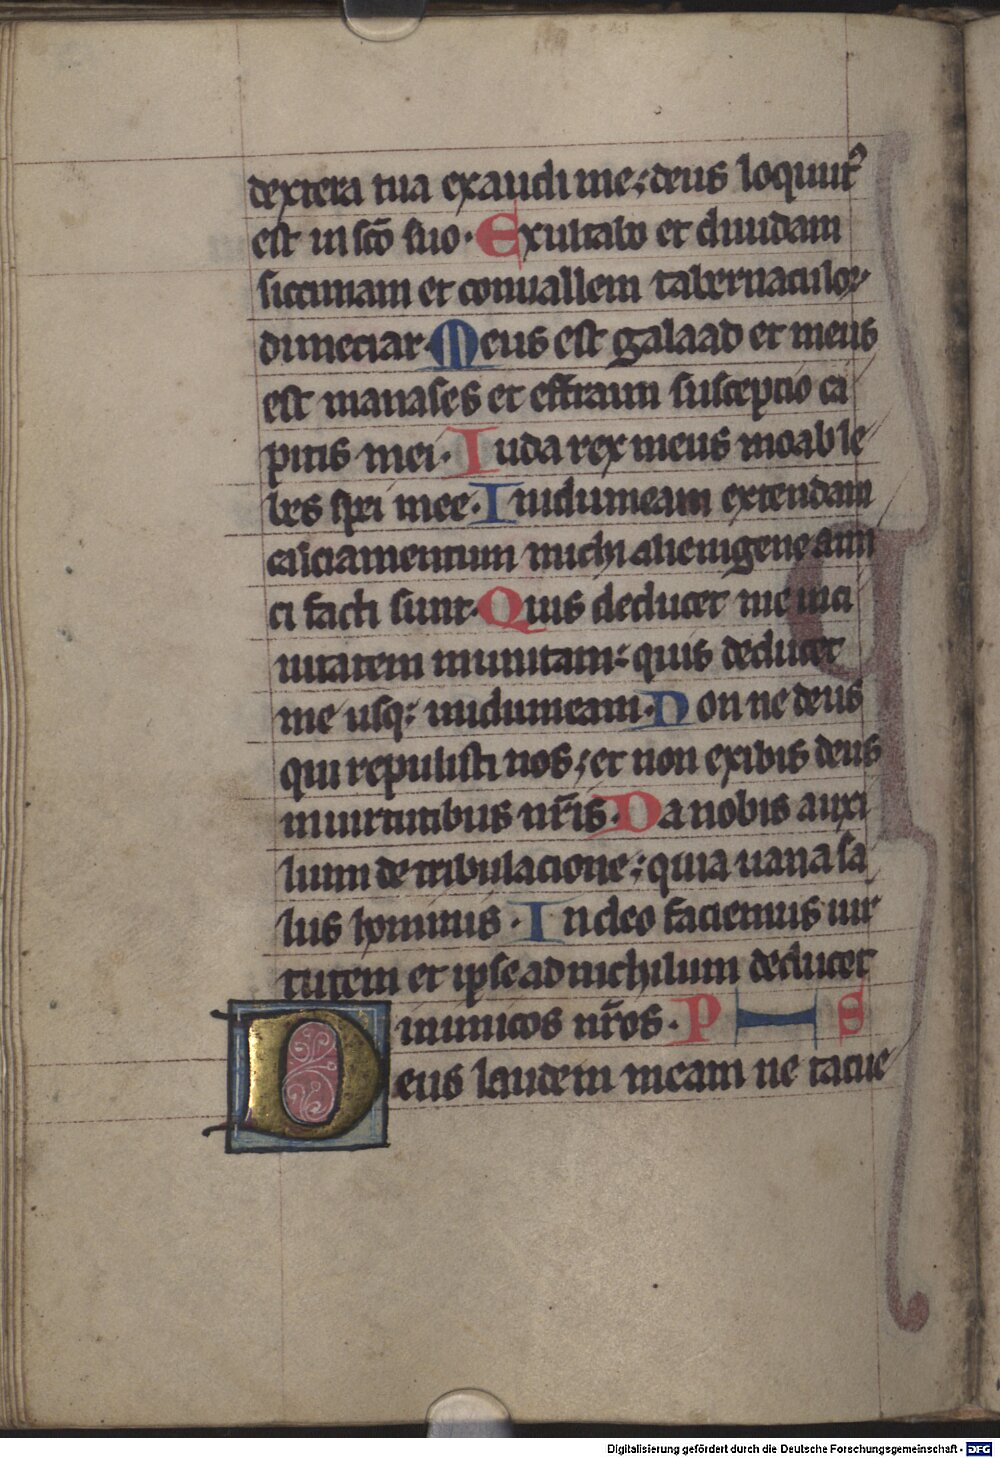 dextera tua exaudi me; deus loquut᷒
est in sc̄o suo. Exultabo et diuidam
siccimam et conuallem tabernaculoꝝ
dimeciar. Meus est galaad et meus
est manases et effraim susceptio ca
pitis mei. Iuda rex meus moab le
bes spei mee. Inidumeam extendam
calciamentum michi alienigene ami
ci facti sunt. Quis deducet me inci
uitatem munitam: quis deducet
me usq; inidumeam. Nonne deus
qui repulisti nos; et non exibis deus
inuirtutibus nr̄is. Da nobis auxi
lium de tribulacione: quia uana sa
lus hominis. Indeo faciemus uir
tutem et ipse adnichilum deducet
inimicos nr̄os. PS
Deus laudem meam ne tacue
Digitalisierung gefördert durch die Deutsche Forschungsgemeinschaft - DFG